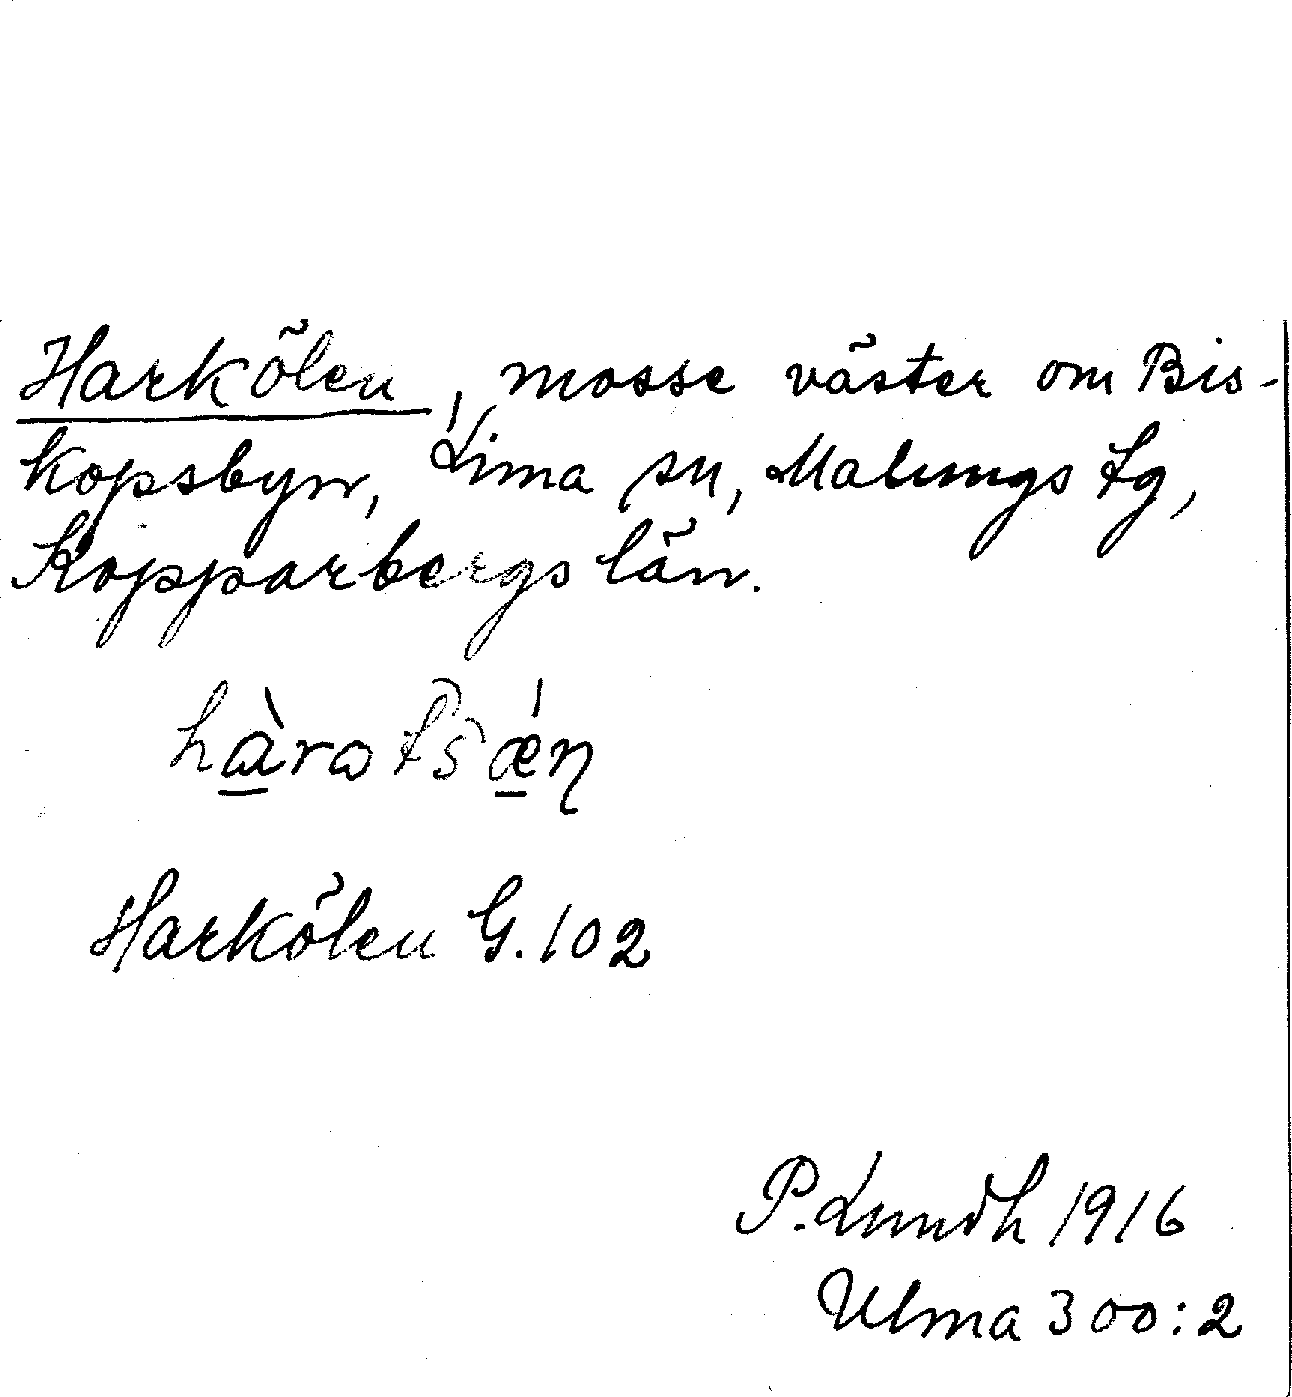 Harkölen, mosse väster om Bis-
kopsbyn, Lima sn, Malungs tg,
Kopparbergs län.
Harkölen G. 102
P. Lundh 1916
Ulma 300:2